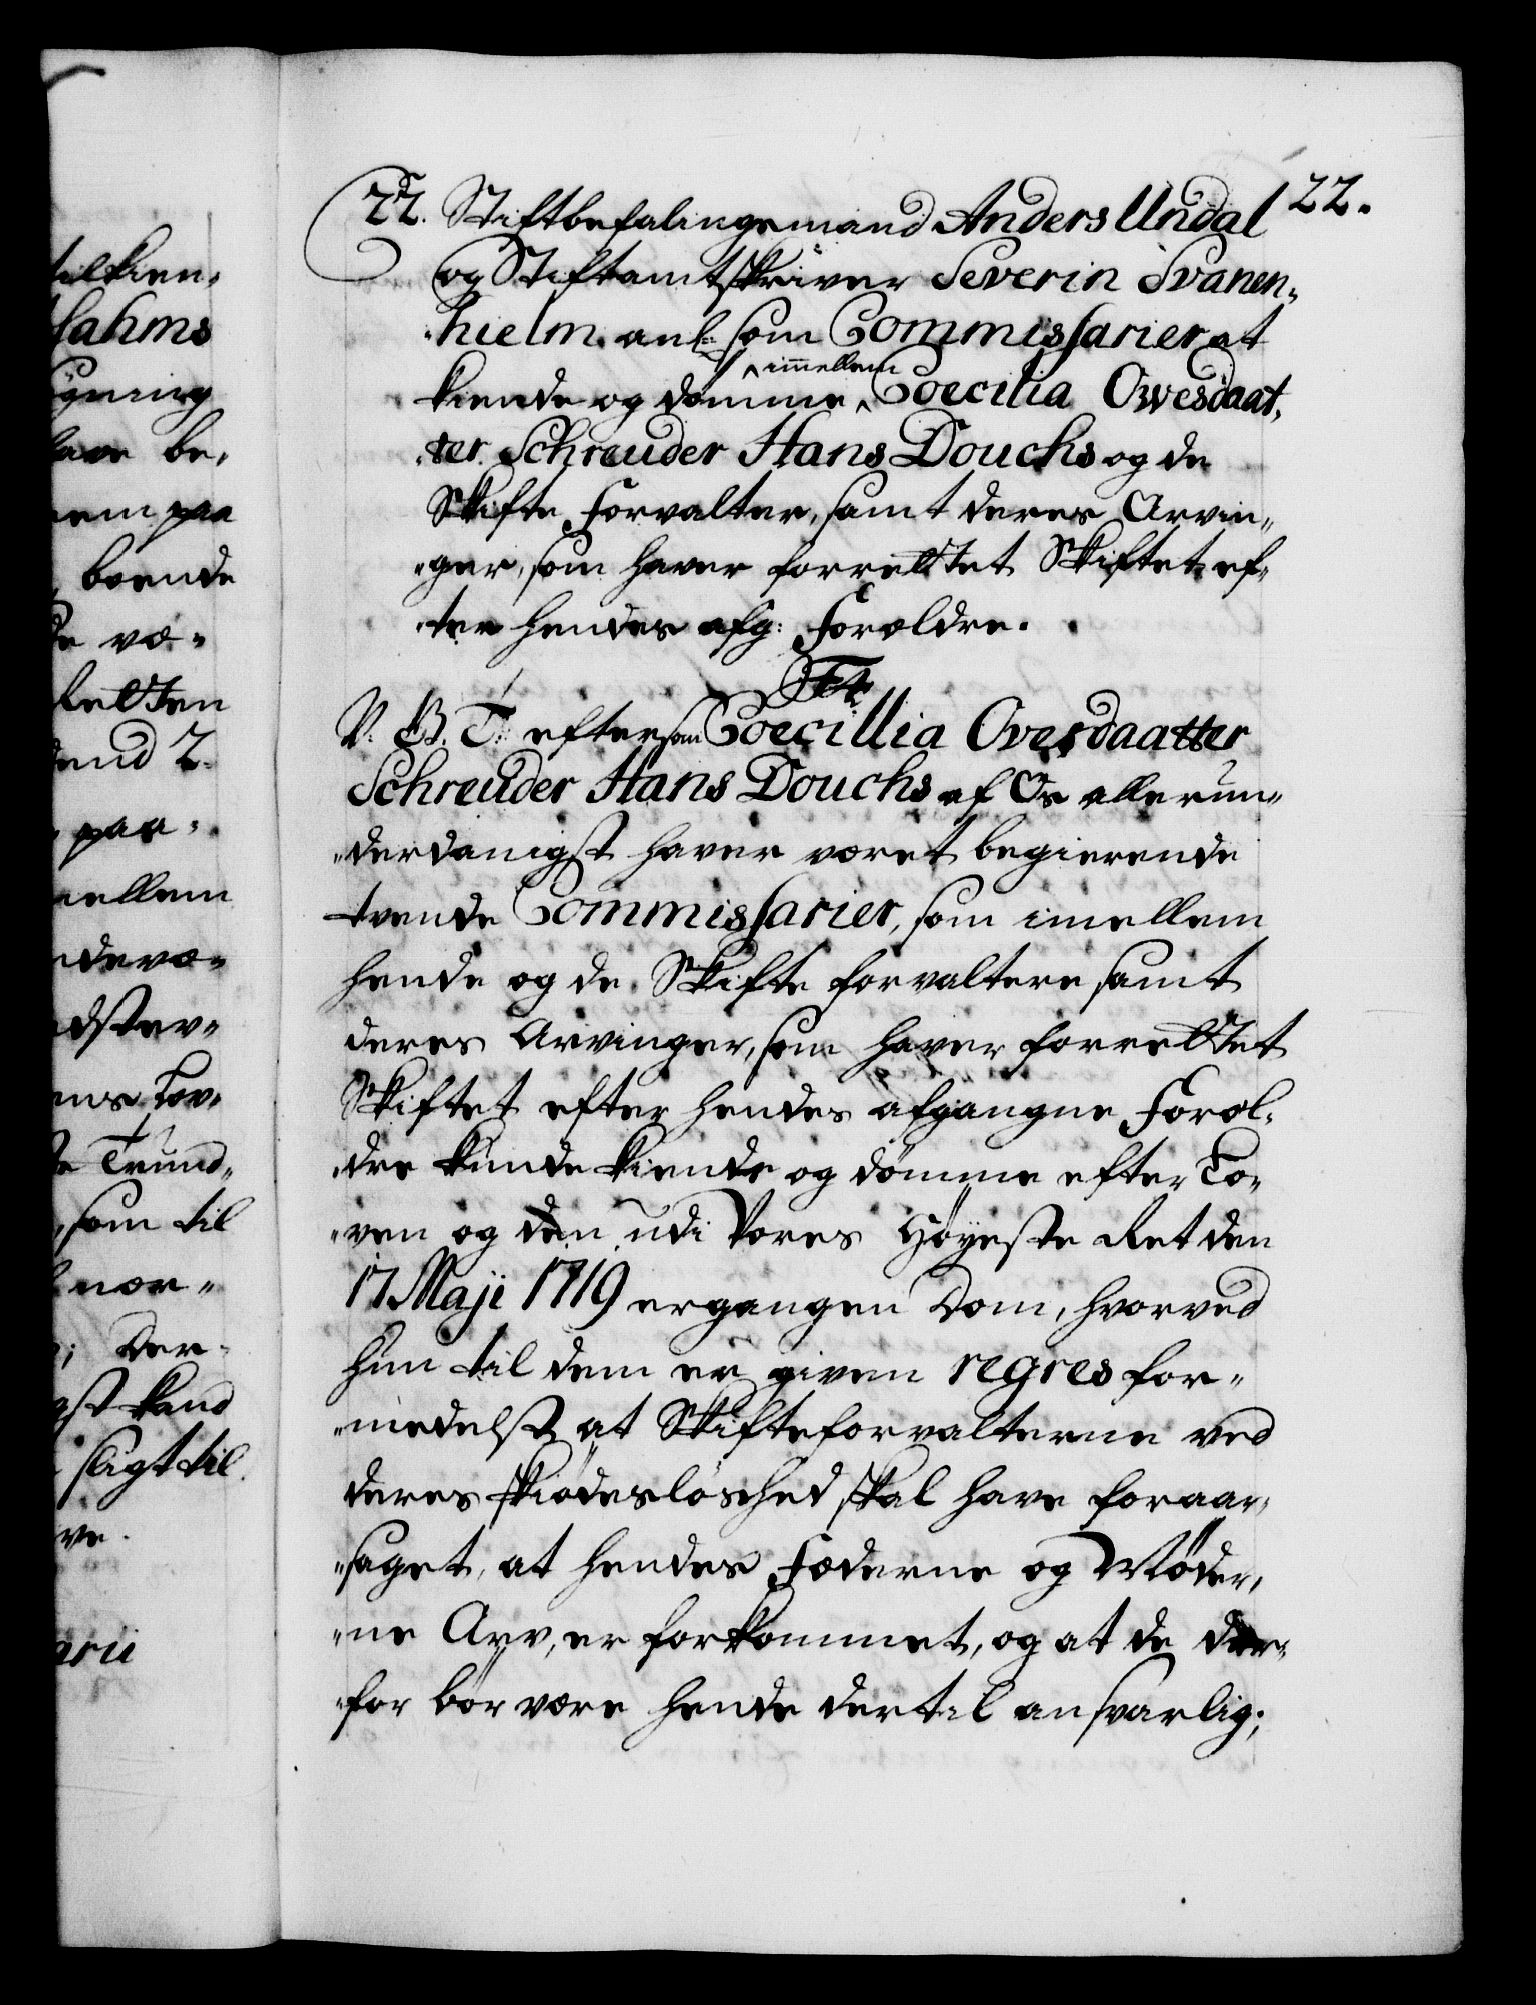 22.
22. Stiftbefalingsmand Anders Undal
og Stiftamtskriver Severin Svanen„
„hielm anl: som Commissarier at
kiende og dømme imellem Coecilia Owesdaat„
„ter Schreuder Hans Douchs og de
Skifte Forvalter, samt deres Arvin„
„ger, som haver forrettet Skiftet ef„
„ter hendes afg: Forældre.
F4.
V. G. T: eftersom Coecillia Ovesdaatter
Schreuder Hans Douchs af Os allerun„
„derdanigst haver været begierende
tvende Commissarier, som imellem
hende og de Skifte forvaltere samt
deres Arvinger, som haver forrettet
Skiftet efter hendes afgangne Foræl„
„dre kunde kiende og dømme efter Lo„
„ven og den udi Vores Høyeste Ret den
17 Maji 1719 ergangen Dom, hvorved
hun til dem er given regres for„
„medelst at Skifteforvalterne ved
deres skiødesløshed skal have foraar„
„saget, at hendes Fæderne og Møder„
„ne Arv, er forkommet, og at de der„
„for bør være hende dertil ansvarlig;
tilkien„
Hahms
be„
paa
boende
væ„
Retten
2.
paa„
Trund„
som til
nær„
Der„
kand
sligt til
arii